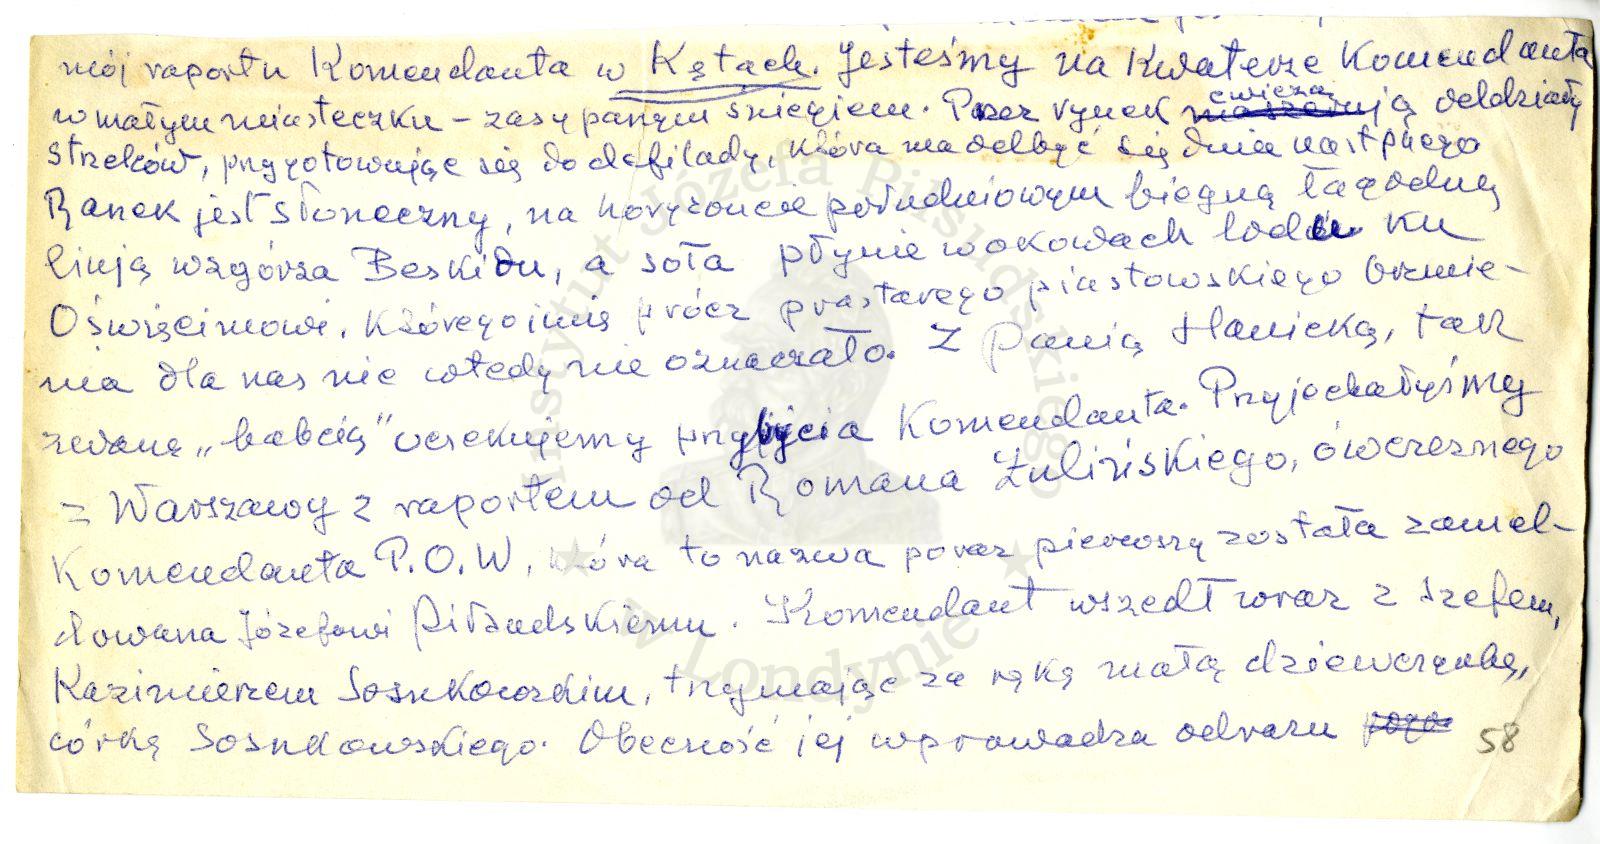 mój raportu Komendanta w Kętach. Jesteśmy na Kwaterze Komendanta
w małym miasteczku – zasypanym śniegiem. Przez rynek ćwiczą maszerują oddziały
strzelców, przygotowując się do defilady, która ma odbyć się dnia następnego
Ranek jest słoneczny, na horyzoncie południowym biegną łagodną
linją wzgórza Beskidu, a soła płynie w okowach lodu ku
Oświęcimowi, którego imię prócz prastarego piastowskiego brzmie-
nia dla nas nic wtedy nie oznaczało. Z Panią Hanicką, tak
zwaną „babcią" oczekujemy przybycia Komendanta. Przyjechałyśmy
z Warszawy z raportem od Romana Żulińskiego, ówczesnego
Komendanta P.O.W, która to nazwa poraz pierwszy została zamel-
dowana Józefowi Piłsudskiemu. Komendant wszedł wraz z szefem,
Kazimierzem Sosnkowskim, trzymając za rękę małą dziewczynkę,
córkę Sosnkowskiego. Obecność jej wprowadza odrazu
58
Instytut Józefa Piłsudskiego
w Londynie